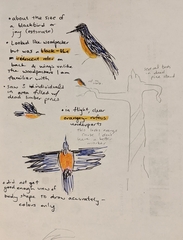 • about the size of
a blackbird or
jay (estimate)
• Looked like woodpecker
but was a black-like
iridescent color on
back & wings unlike
the woodpeckers I am
familiar with
• saw 5 individuals
in area filled w/
dead timber pines
• in flight, clear
orangey-rufous
underparts
• did not get
good enough views of
body shape to draw accurately -
colors only